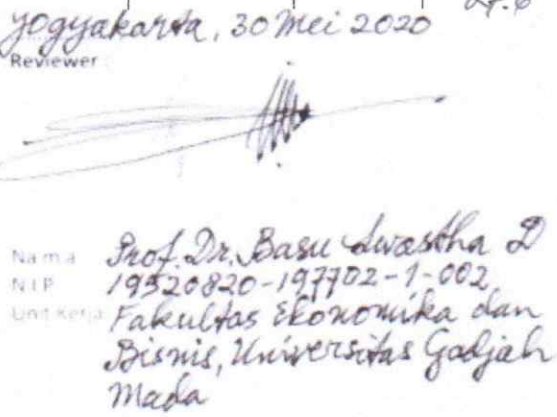 Yogyakarta, 30 Mei 2020
Reviewer
Nama Prof. Dr. Basu Swastha D
NIP 19520820-197702-1-002
Unit Kerja Fakultas Ekonomika dan
Bisnis, Universitas Gadjah
Mada